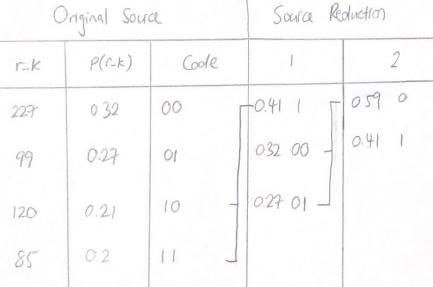 Original Source Source Reduction
r-k P(r-k) Code 1 2
227 0.32 00 0.41 1 0.59 0
99 0.27 01 0.32 00 0.41 1
120 0.21 10 0.27 01
85 0.2 11